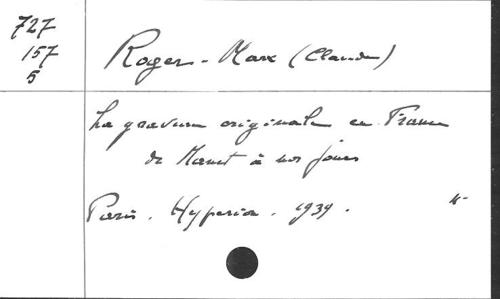 727
157
5
Roger-Marx (Claude)
La gravure originale en France
de Manet à nos jours
Paris. Hyperion. 1939.